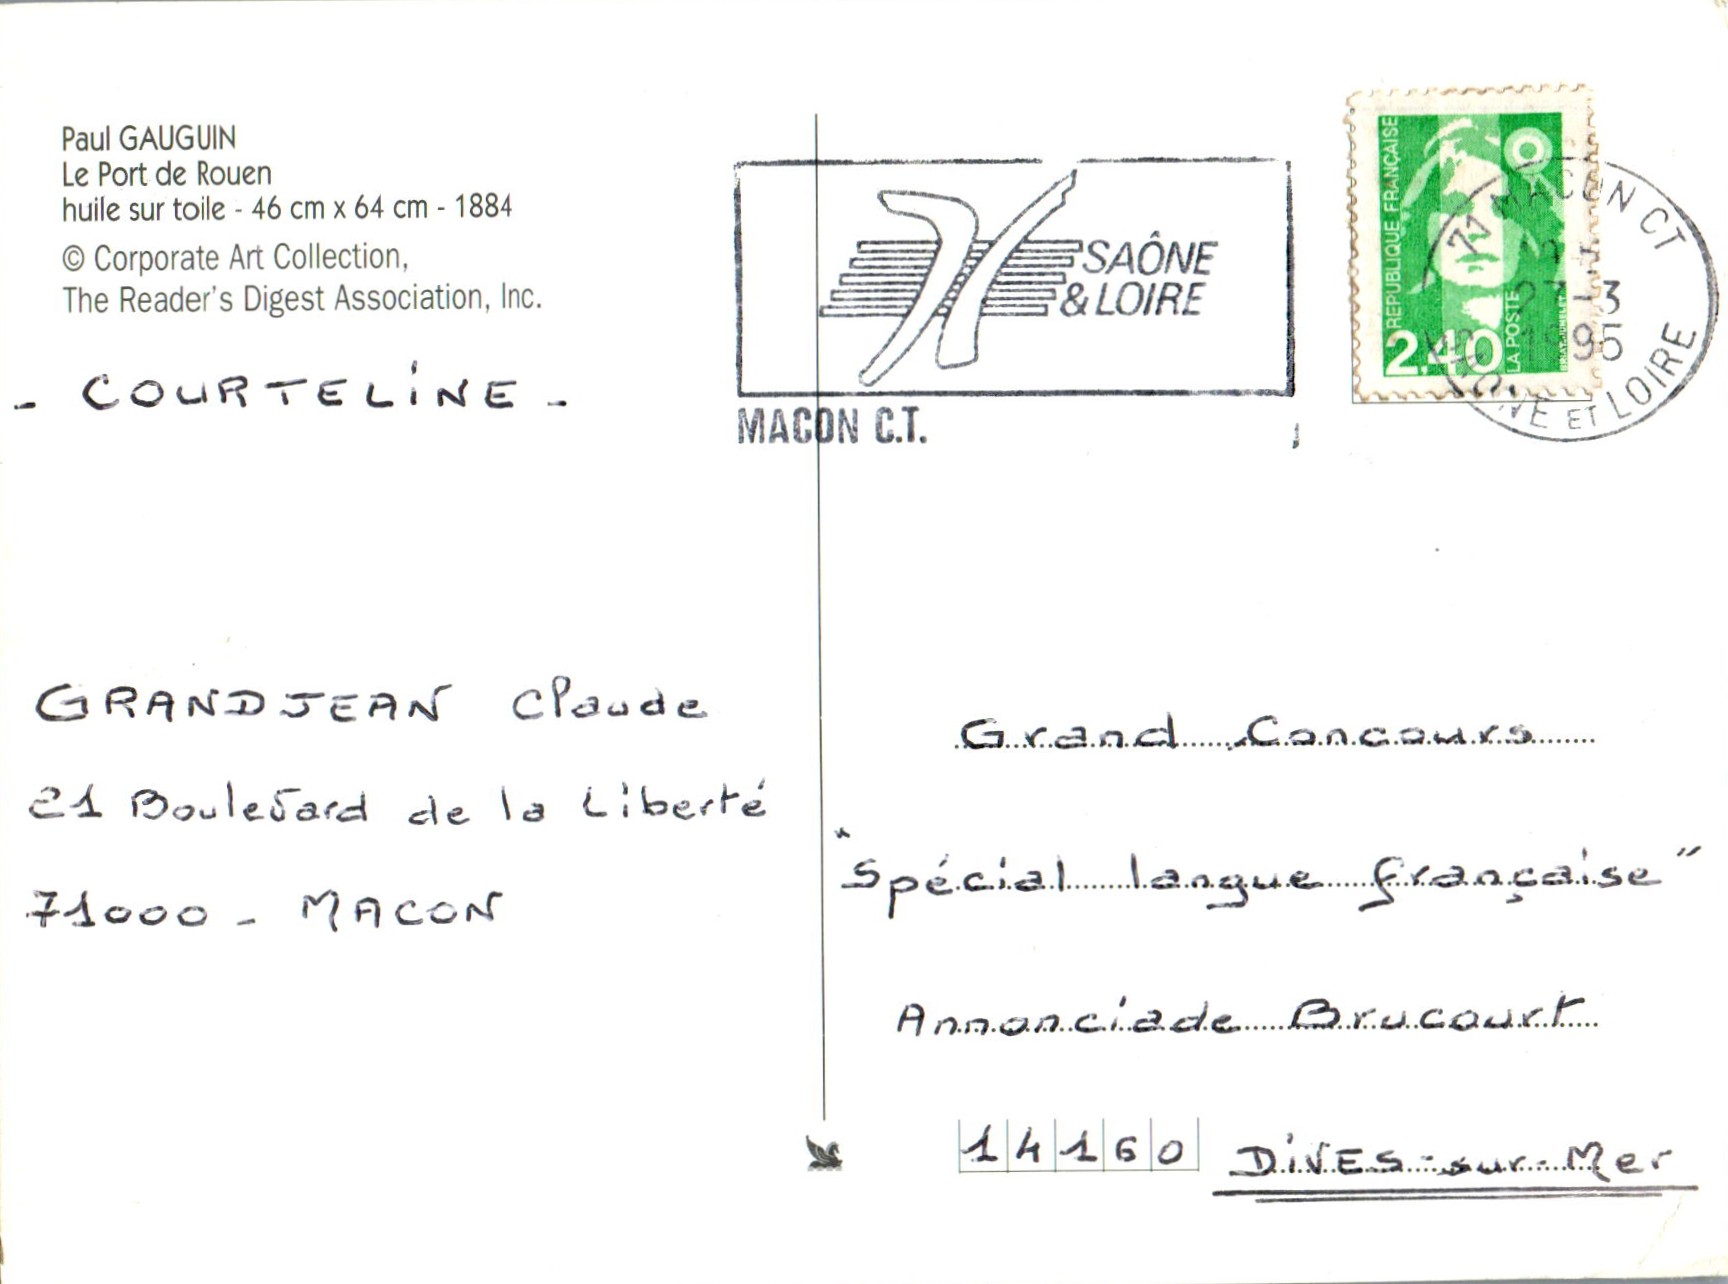 Paul GAUGUIN
Le Port de Rouen
huile sur toile - 46 cm x 64 cm - 1884
© Corporate Art Collection,
The Reader's Digest Association, Inc.
- COURTELINE -
GRANDJEAN Claude
21 Boulevard de la Liberté
71000 - MACON
SAÔNE
& LOIRE
MACON C.T.
REPUBLIQUE FRANÇAISE
2,40
LA POSTE
71 MACON CT
27-3
1995
SAONE ET LOIRE
Grand Concours
"Spécial langue française"
Annonciade Brucourt
14160 DIVES-sur-Mer